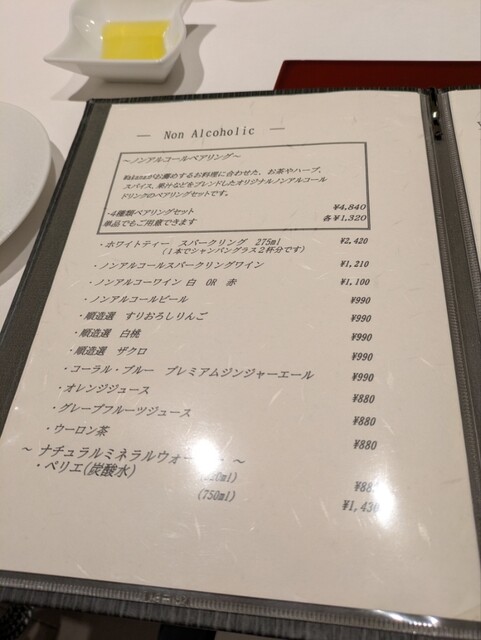 — Non Alcoholic —
～ノンアルコールペアリング～
Wakanaがお薦めするお料理に合わせた、お茶やハーブ、
スパイス、果汁などをブレンドしたオリジナルノンアルコール
ドリンクのペアリングセットです。
・4種類ペアリングセット ¥4,840
単品でもご用意できます 各¥1,320
・ホワイトティー スパークリング 275ml ¥2,420
(1本でシャンパングラス2杯分です)
・ノンアルコールスパークリングワイン ¥1,210
・ノンアルコーワイン 白 OR 赤 ¥1,100
・ノンアルコールビール ¥990
・順造選 すりおろしりんご ¥990
・順造選 白桃 ¥990
・順造選 ザクロ ¥990
・コーラル・ブルー プレミアムジンジャーエール ¥990
・オレンジジュース ¥880
・グレープフルーツジュース ¥880
・ウーロン茶 ¥880
～ ナチュラルミネラルウォーター ～
・ペリエ(炭酸水)
(750ml) ¥1,430